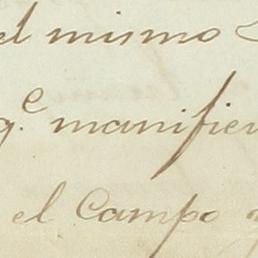 el mismo
q.e manifie
el Campo